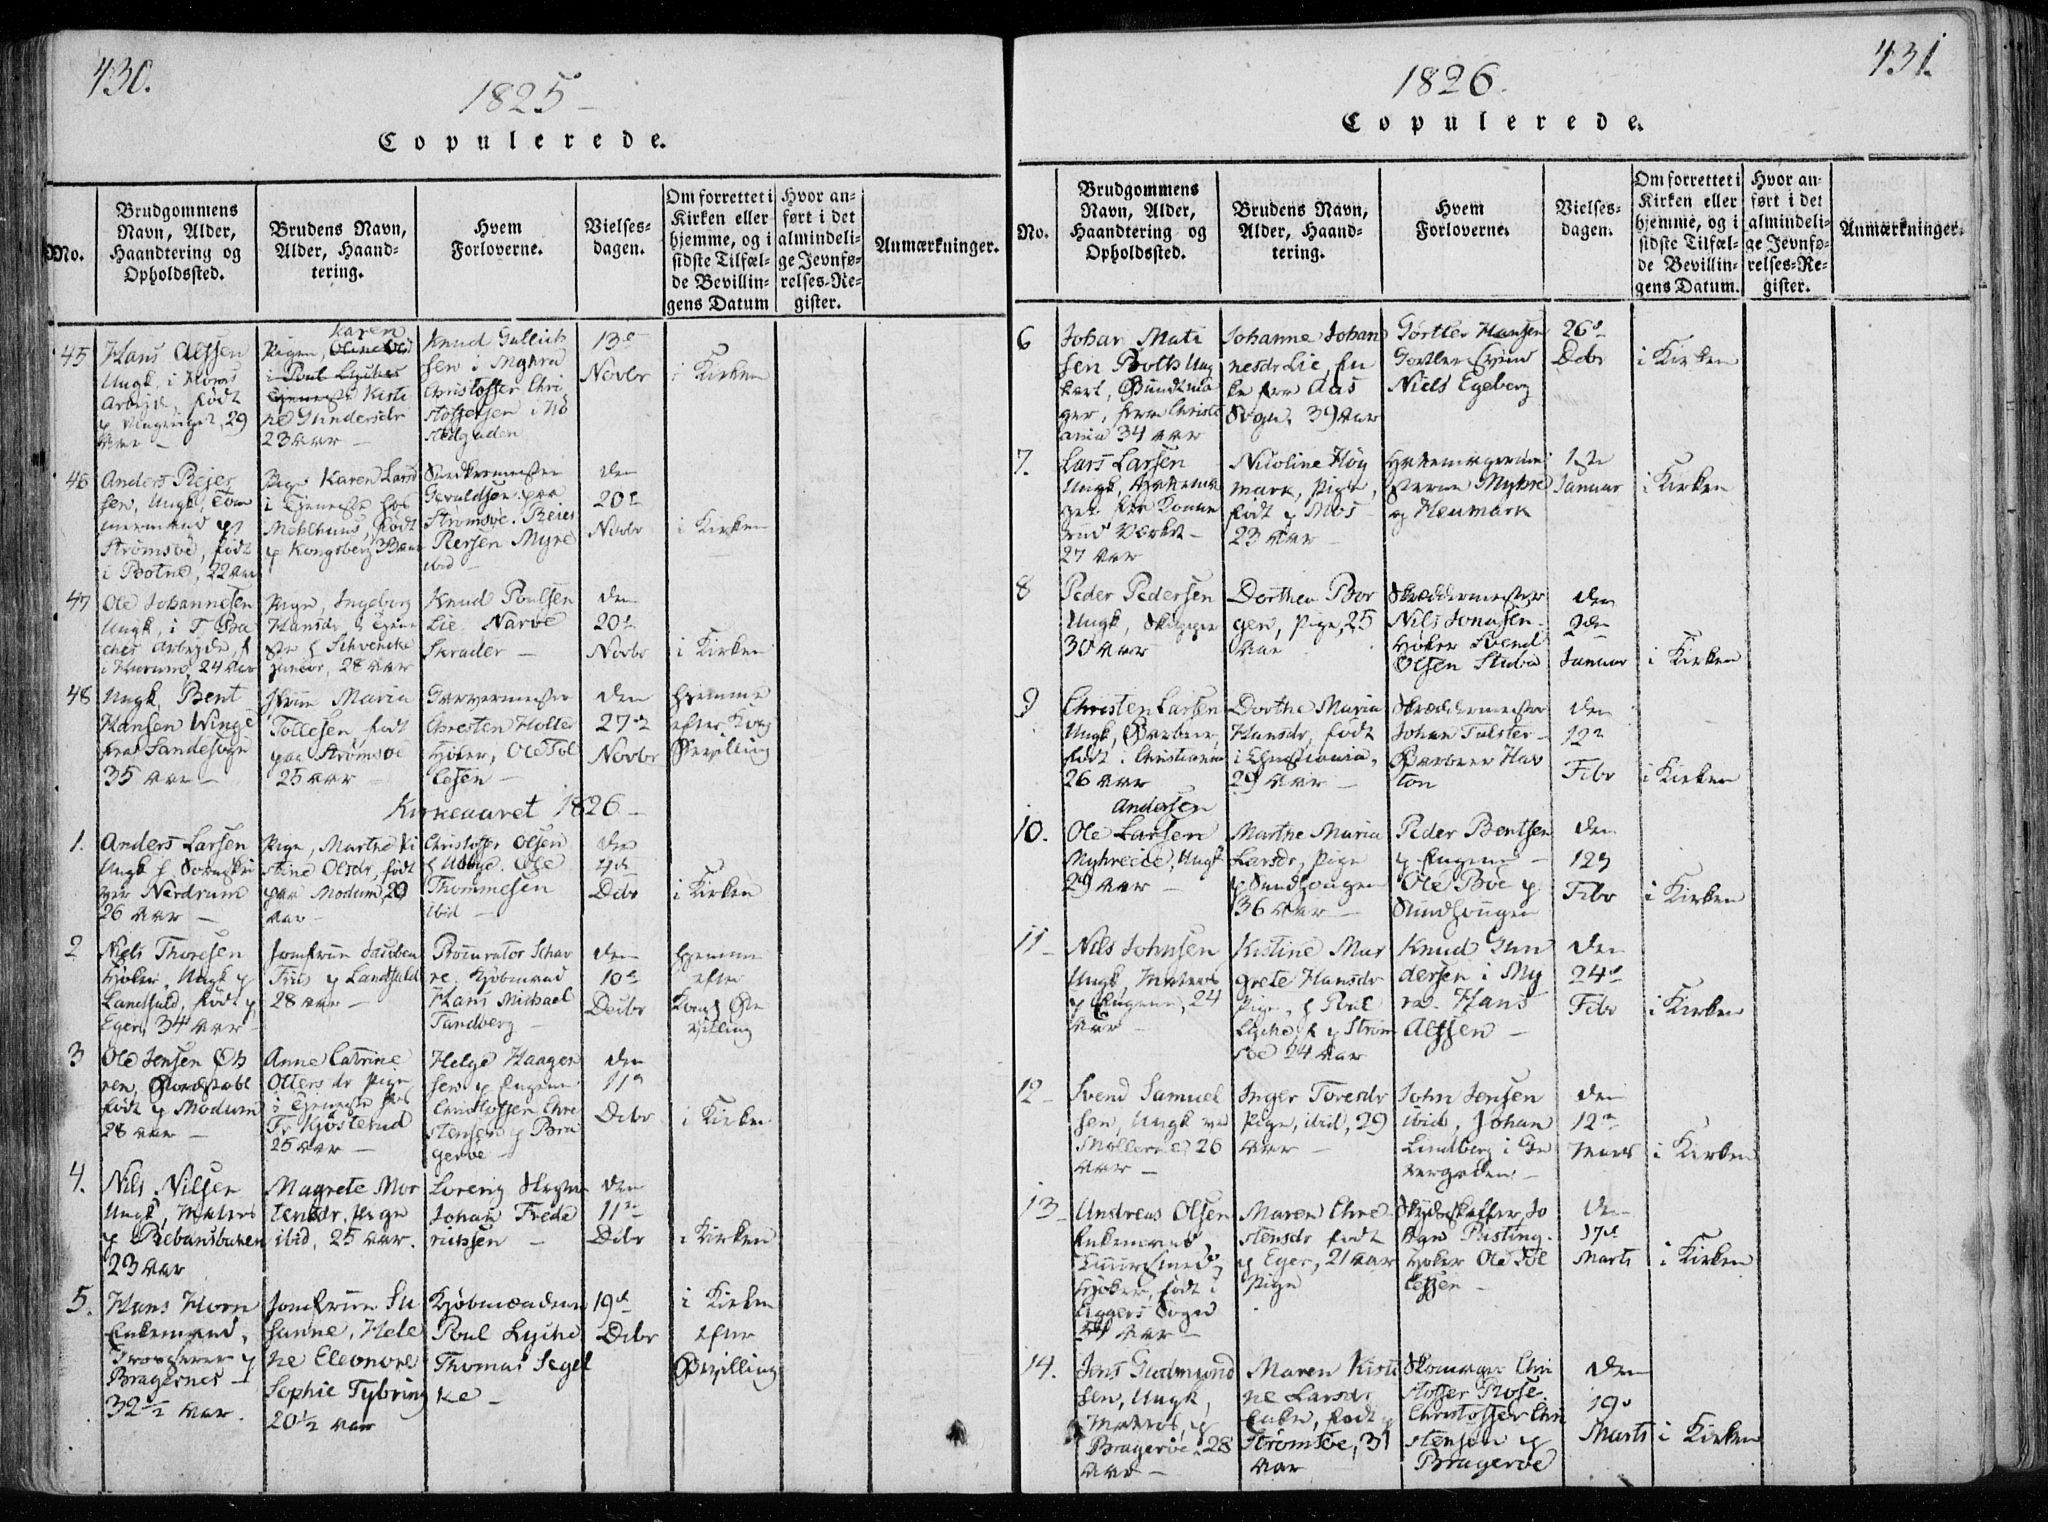 430.
1825
Copulerede.
No.
Brudgommens Navn, Alder, Haandtering og Opholdssted.
Brudens Navn, Alder, Haandtering.
Hvem Forloverne.
Vielsesdagen.
Om forrettet i Kirken eller hjemme, og i sidste Tilfælde Bevillingens Datum
Hvor anført i det almindelige Jevnførelses-Register.
Anmærkninger.
45
Hans Alfsen
Ungk. i
Arbejd, født
29
Aar
Pigen, Karen
Kisti
ne Gundersdr
23 Aar
Knud Gullich
sen i Myhra
Christoffer Chri
stoffersen i
13de
Novbr
i Kirken
46
Anders Rejer
sen, Ungk, Tøm
mermand p
Strømsøe, født
i Botne, 22 Aar
Pige Karen Lars
i Tjeneste hos
Mehlhuus, født
p Kongsberg
Snedkermester
paa
Strømsøe. Reier
Piersen Myre
ibid
den
20de
Novbr
i Kirken
47
Ole Johannesen
Ungk, i T. Ba
ches Arbejde, f
i Hurum, 24 Aar
Pige, Ingeborg
Hansdr
Schwencke
Junior, 28 Aar
Knud Poulsen
Lie. Narve
Skrader
den
20de
Novbr
i Kirken
48
Ungk. Bent
Hansen Winge
fra Sandesogn
35 Aar
Jfrue Maria
Tollefsen, født
paa Strømsøe
25 Aar
Garvermester
Christen Holte
Høker, Ole Tol
lefsen
den
27de
Novbr
Hjemme
efter Kong
Bevilling
Kirkeaaret 1826
1.
Anders Larsen
Ungk
Nordrum
26 Aar
Pige, Marthe Ki
stine Olsdr, født
paa Modum, 29
Aar
Christoffer Olsen
Ole
Thommesen
ibid
den
4de
Debr
i Kirken
2
Niels Thoresen
Høker, Ungk p
Landfald, født p
Eger, 34 Aar
Jomfrue Jacobine
Friis p Landfald
28 Aar
Procurator Schar
re, Kjøbmand
Hans Michael
Tandberg
den
10de
Decbr
Hjemme
efter
Kongl Be
villing
3
Ole Jensen
født p Modum
28 Aar
Anne Catrine
Ottersdr Pige
i Tjeneste hos
Fr Kjøsterud
25 Aar
Helge Haagen
sen p Engene
Christoffer Chri
stensen p Bra
gerøe
den
11de
Debr
i Kirken
4.
Nils Nilsen
Ungk, Matros
p Bebansbaken
23 Aar
Magrete Mor
tensdr. Pige
ibid, 25 Aar.
Lorens
Johan Frede
richsen
den
11te
Debr
i Kirken
5.
Hans Horn
Enkemand,
p
Bragernes
32½ Aar.
Jomfrue Su
sanne, Hele
ne Eleonore
Sophie Tybring
20½ Aar
Kjøbmændene
Poul Lyche
Thomas Segel
ke
19de
Debr
i Kirken
efter
Bevilling
431.
1826.
Copulerede.
No.
Brudgommens Navn, Alder, Haandtering og Opholdssted.
Brudens Navn, Alder, Haandtering.
Hvem Forloverne.
Vielsesdagen.
Om forrettet i Kirken eller hjemme, og i sidste Tilfælde Bevillingens Datum.
Hvor anført i det almindelige Jevnførelses-Register.
Anmærkninger.
6
Johan Mati
sen Bolth Ung
karl, Bundtma
ger, fra Christi
ania 34 Aar
Johanne Johan
nesdr Lie, En
ke fra Aas
Sogn, 39 Aar
Gørtler Hansen
Gørtler
Niels Egeberg
26de
Debr
i Kirken
7.
Lars Larsen
Ungk,
27 Aar
Nicoline Høy
mark, Pige,
født p Mos
23 Aar
Myhre
og Heumark
1ste
Januar
i Kirken
8
Peder Pedersen
Ungk, Skipper
30 Aar
Dorthea Bor
gen, Pige, 25
Aar
Skræddermester
Nils Jonasen.
Høker Svend
Olsen Stuba
den
2den
Januar
i Kirken
9
Christen Larsen
Ungk, Barbeer,
født i Christiania
26 Aar
Dorthe Maria
Hansdr, født
i Christiania,
29 Aar
Skræddermester
Johan Tulster
Barbeer Hav
ton
den
12te
Febr
i Kirken
10.
Andersen
Ole Larsen
Myhreeie, Ungk
29 Aar
Marthe Maria
Larsdr, Pige
p Sundhougen
36 Aar
Peder Bentsen
p Engene
Ole Bøe p
Sundhougen
den
12te
Febr
i Kirken
11
Nils Johnsen
Ungk, Matros
p Engene, 24
Aar
Kistine Mar
grete Hansdr
Pige, h Poul
Lyche, f p Strøm
søe 24 Aar
Knud Gun
dersen i My
ra. Hans
Alfsen
den
24de
Febr
i Kirken
12
Svend Samuel
sen, Ungk ved
Møllerne, 26
Aar
Inger Toresdr
Pige, ibid, 29
Aar
John Jensen
ibid, Johan
Lindberg i
den
12te
Marts
i Kirken
13
Andreas Olsen
Enkemand
Høker, født i
Eggers Sogn
Aar
Maren Chri
stensdr født
p Eger, 21 Aar
Pige
Skydsskaffer, Jo
han Risting.
Høker Ole Tol
lefsen
den
17de
Marts
i Kirken
14.
Jens Gudmund
sen, Ungk,
Matros, p
Bragerøe, 28
Aar
Maren Kisti
ne Larsdr
Enke, født p
Strømsøe, 31
Aar
Skomager Chri
stoffer Rose.
Christoffer Chri
stensen p
Bragerøe
den
19de
Marts
i Kirken